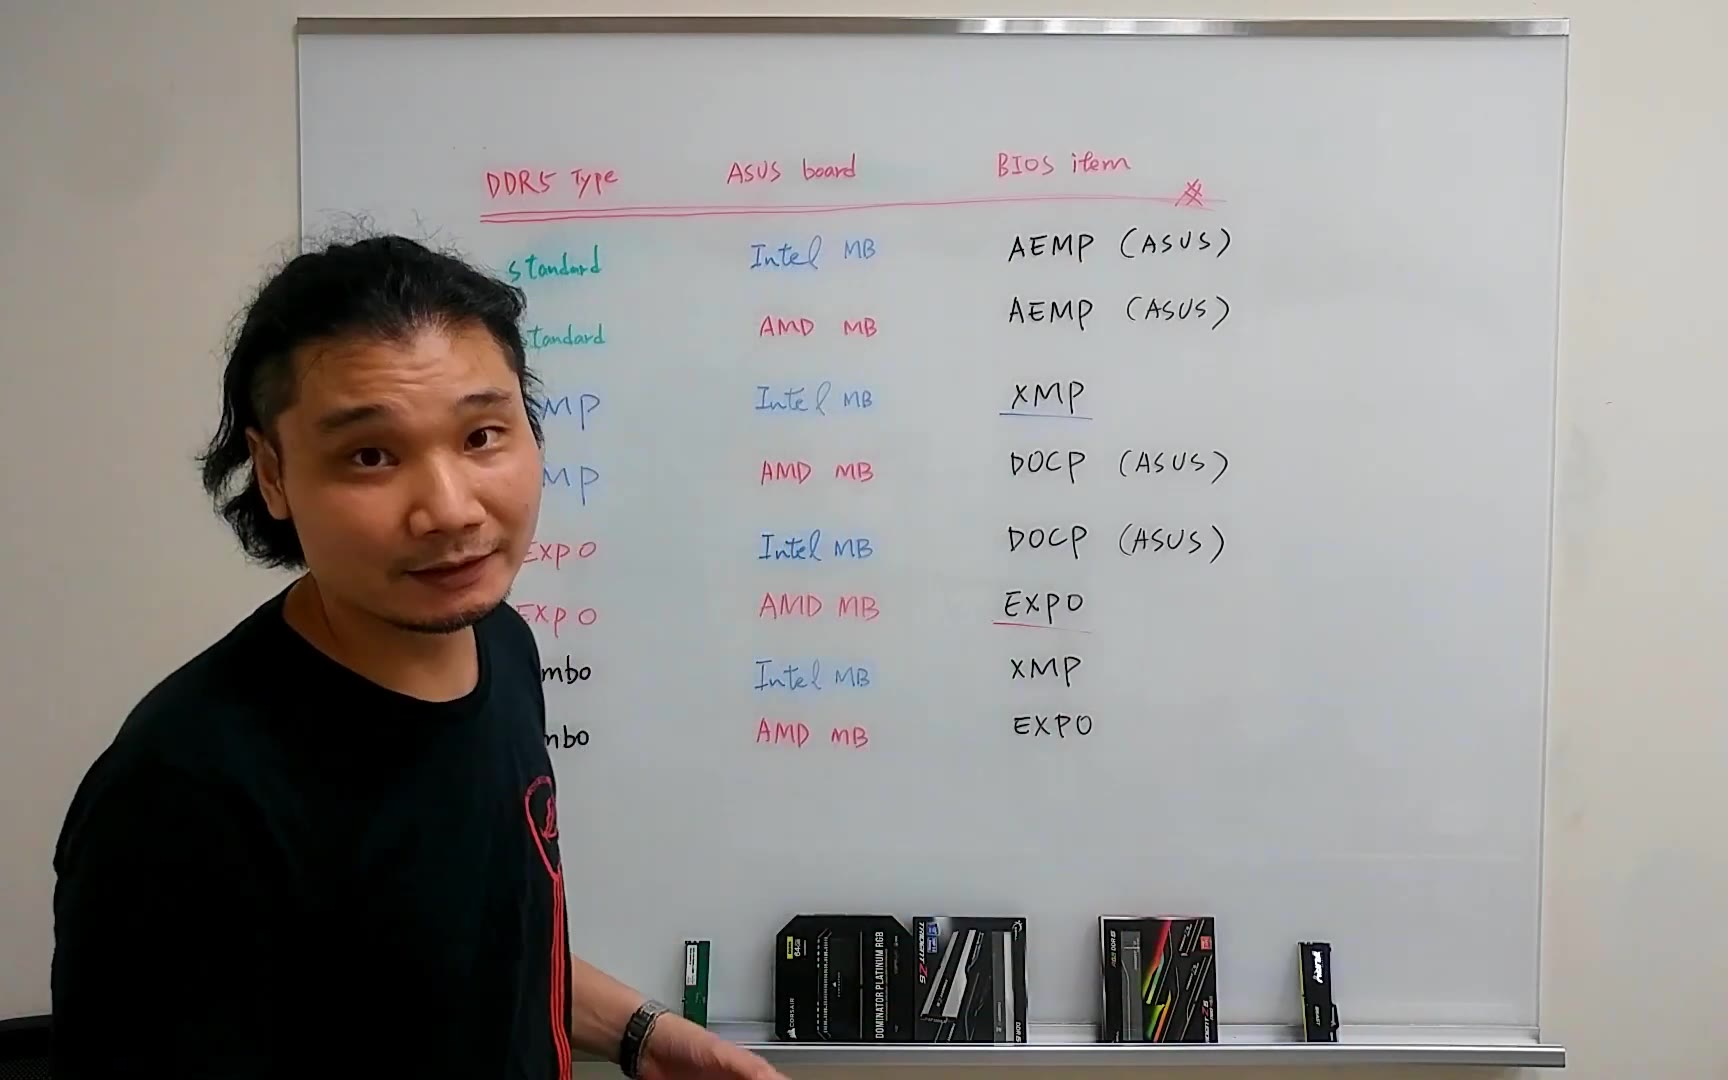 DDR5 Type ASUS board BIOS item
standard Intel MB AEMP (ASUS)
tandard AMD MB AEMP (ASUS)
MP Intel MB XMP
MP AMD MB DOCP (ASUS)
EXPO Intel MB DOCP (ASUS)
EXPO AMD MB EXPO
mbo Intel MB XMP
mbo AMD MB EXPO
64GB
CORSAIR
DOMINATOR PLATINUM RGB
TRIDENT Z5
DDR5